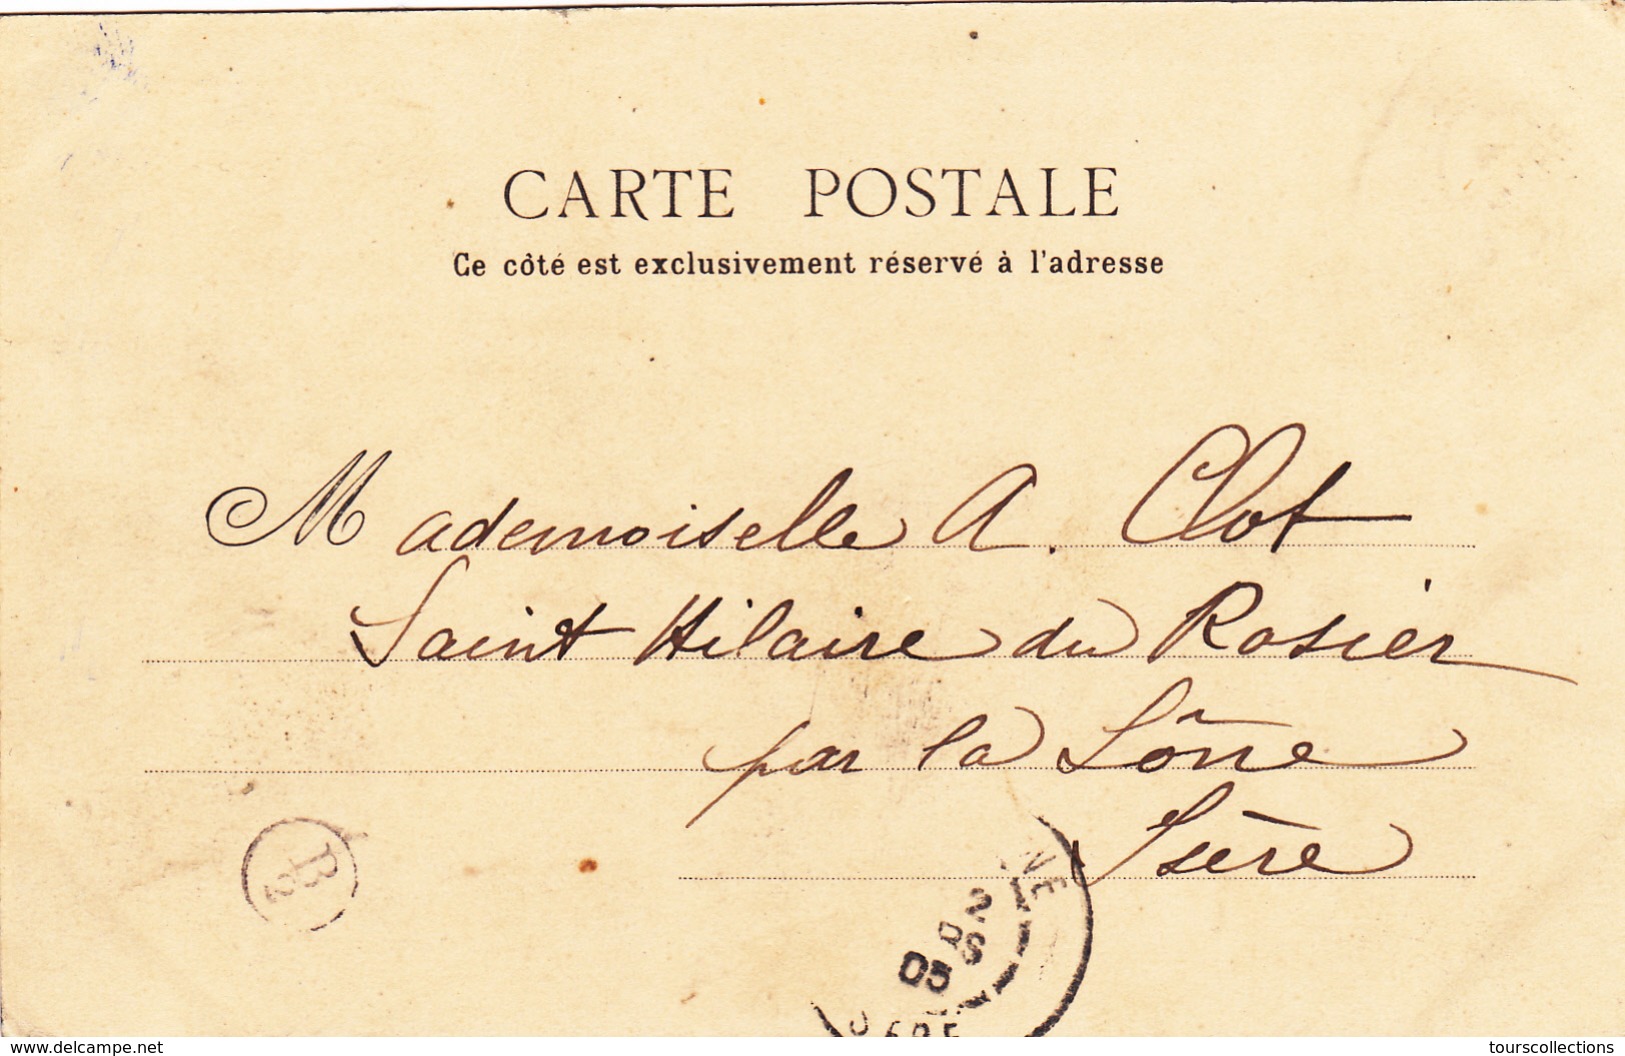 CARTE POSTALE
Ce côté est exclusivement réservé à l'adresse
Mademoiselle A. Clot
Saint Hilaire du Rosier
par la Sône
Isère
B2
NE
2
05
delcampe.net
tourscollections